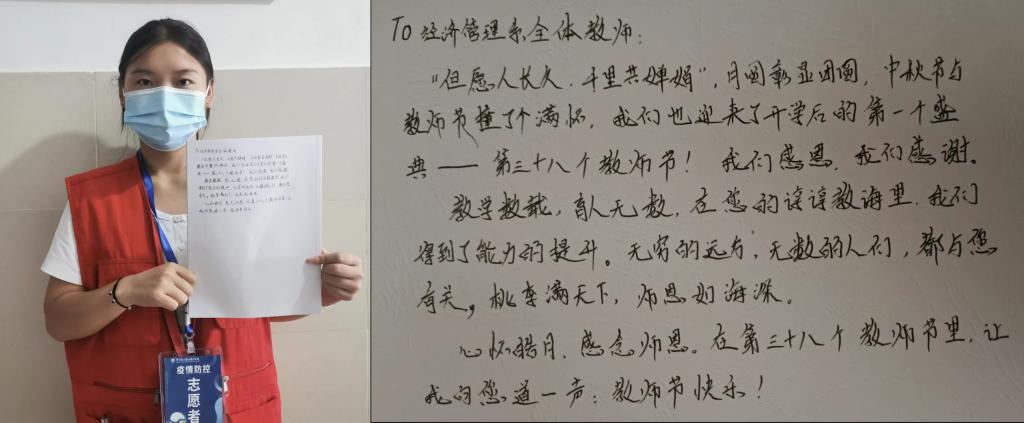 疫情防控
志愿者
To 经济管理系全体教师:
"但愿人长久.千里共婵娟",月圆彰显团圆,中秋节与
教师节撞了个满怀,我们也迎来了开学后的第一个盛
典——第三十八个教师节!我们感恩.我们感谢。
教学数载,育人无数,在您的谆谆教诲里.我们
得到了能力的提升。无穷的远方,无数的人们,都与您
有关。桃李满天下,师恩如海深。
心怀皓月.感念师恩。在第三十八个教师节里.让
我向您道一声:教师节快乐!